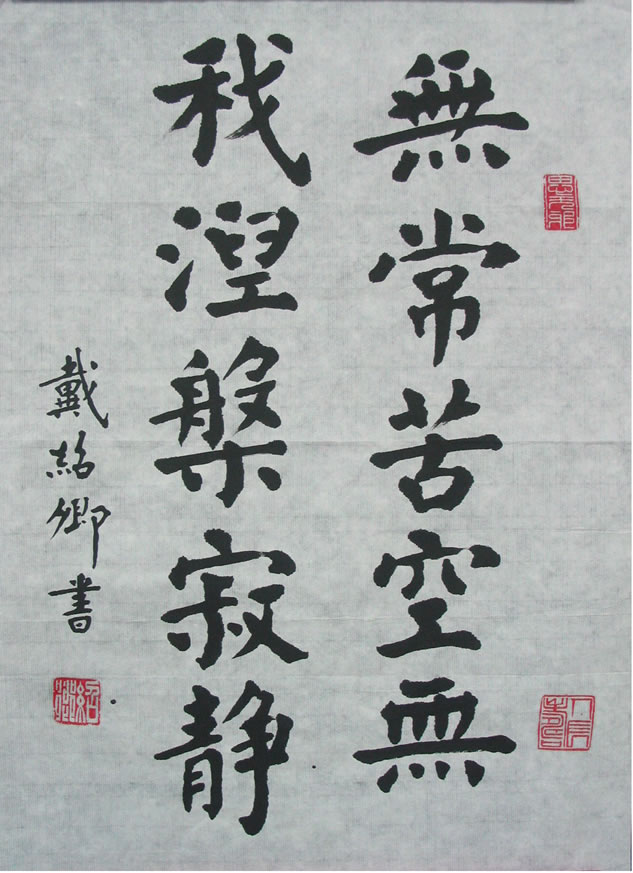 無常苦空無
我涅槃寂静
戴紹卿書